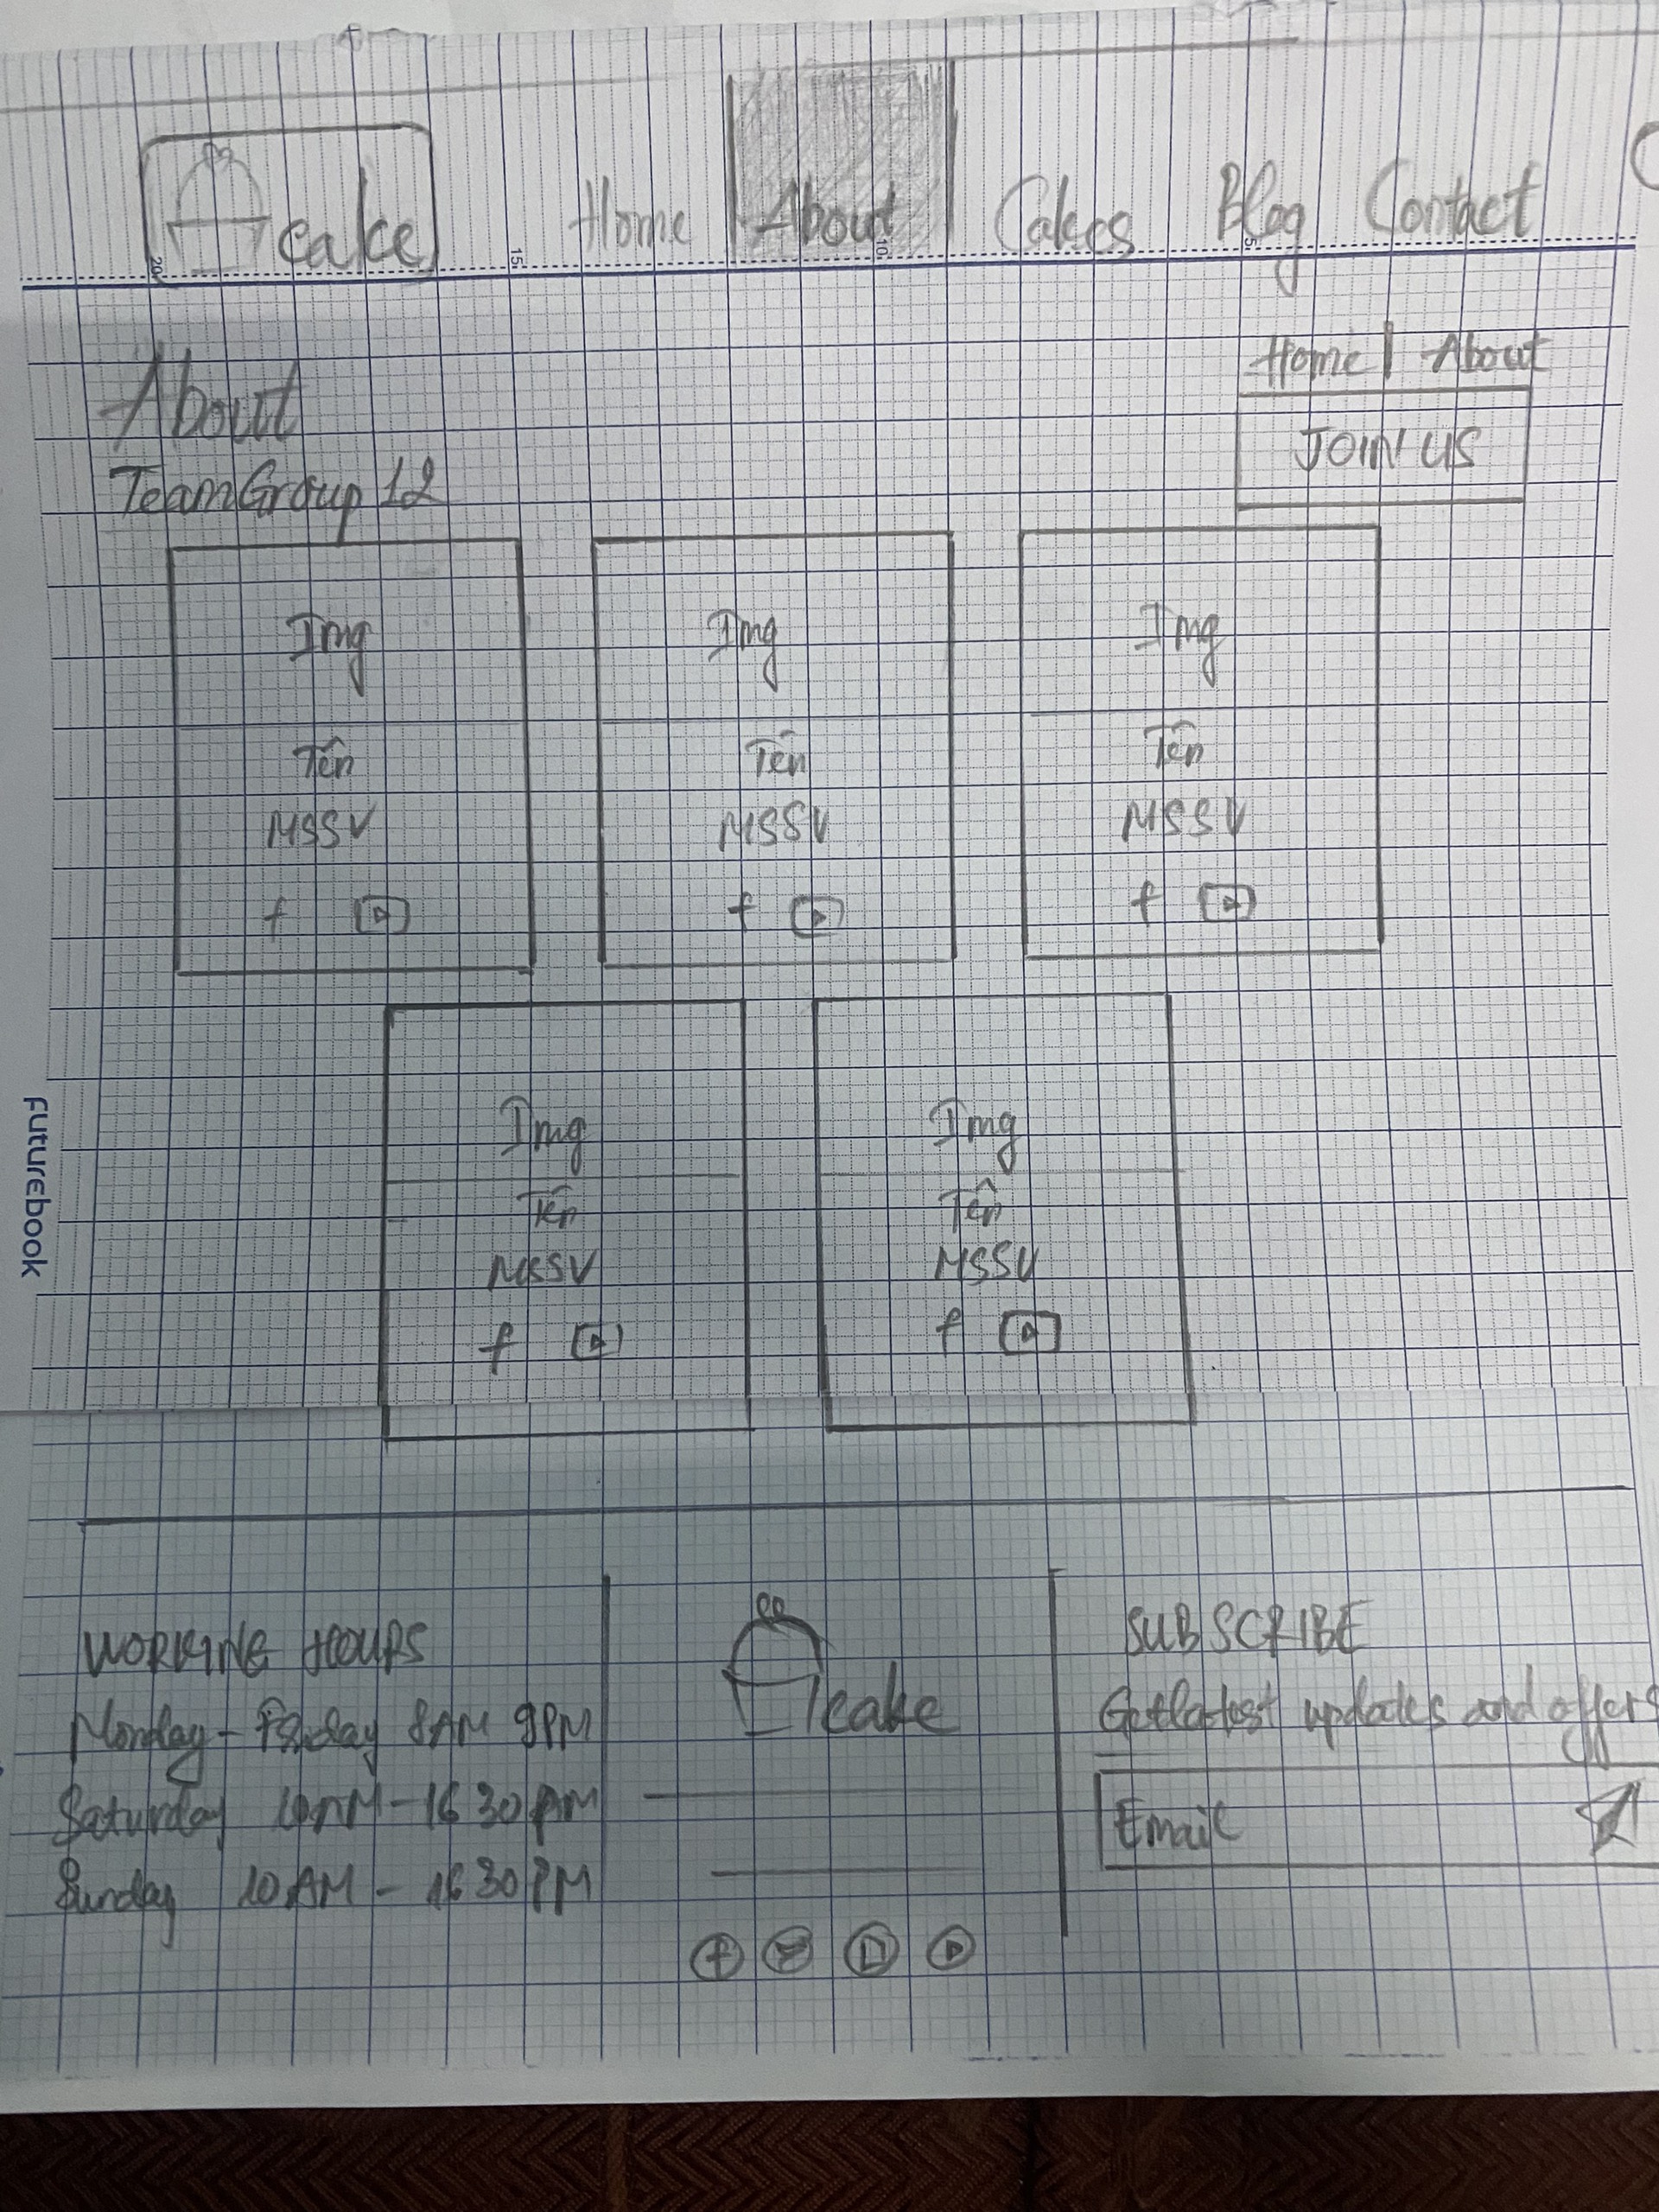 cake Home About Cakes Blog Contact
20 15 10 5
Home | About
About
JOIN US
TeamGroup 12
Img Img Img
Tên Tên Tên
MSSV MSSV MSSV
f f f
Img Img
Tên Tên
MSSV MSSV
f f
Futurebook
WORKING HOURS
Monday - Friday 8AM 9PM
Saturday 10AM - 16 30 PM
Sunday 10 AM - 16 30 PM
cake
f
SUBSCRIBE
Get latest updates and offers
Email